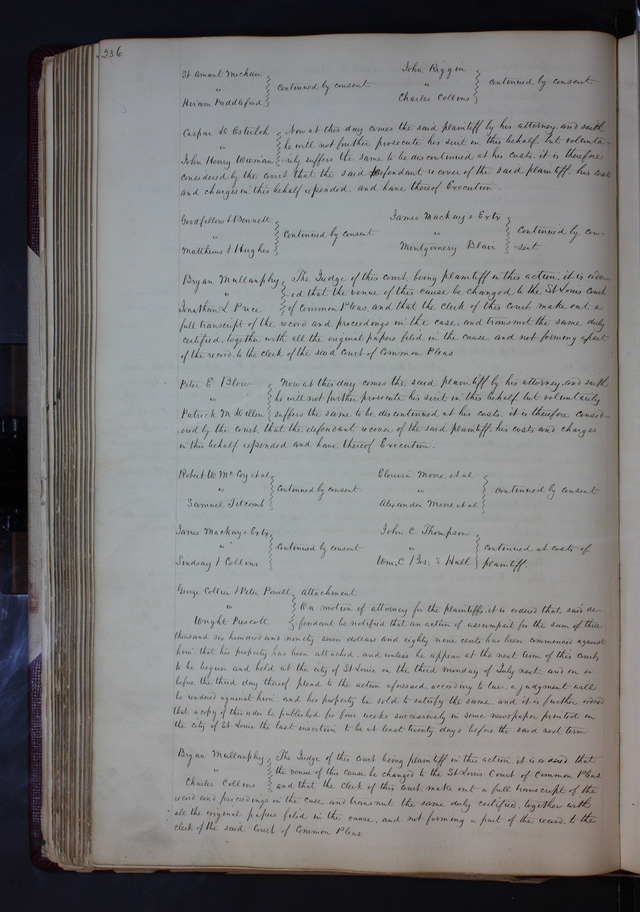 336
St Amant Michau } continued by consent
"
Hiram Paddleford
John Riggin } continued by consent
"
Charles Collins
Caspar D Osterloh } Now at this day comes the said plaintiff by his attorney and saith
" he will not further prosecute his suit in this behalf, but volunta-
John Henry } -rily suffers the same to be discontinued at his costs, it is therefore
considered by the court that the said defendant recover of the said plaintiff, his costs
and charges in this behalf expended, and have thereof Execution.
Goodfellow & Bennett } continued by consent
"
Matthews & Hughes
James Mackay's Extx } continued by con-
" -sent
Montgomery Blair
Bryan Mullanphy } The Judge of this court, being plaintiff in this action, it is order-
" -ed that the venue of this cause be changed to the St Louis Court
Jonathan L Price } of Common Pleas, and that the clerk of this court make out a
full transcript of the record and proceedings in the case, and transmit the same duly
certified, together with all the original papers filed in the cause and not forming a part
of the record, to the clerk of the said Court of Common Pleas
Peter E Blow } Now at this day comes the said plaintiff by his attorney, and saith
" he will not further prosecute his suit in this behalf but voluntarily
Patrick M Dillon } suffers the same to be discontinued at his costs, it is therefore consid-
ered by the court, that the defendant recover of the said plaintiff, his costs and charges
in this behalf expended and have thereof Execution.
Robert W McCoy et al } continued by consent
"
Samuel Titcomb
Moore et al } continued by consent
"
Alexander Moore et al
James Mackay's Extx } continued by consent
"
Lindsay & Collins
John C Thompson } continued at costs of
" plaintiff.
Wm. C & Jos. S Hull
George Collier & Peter Powell } attachment
" On motion of attorney for the plaintiffs, it is ordered that said de-
Wright Prescott } -fendant be notified that an action of assumpsit for the sum of three
thousand six hundred and ninety seven dollars and eighty nine cents has been commenced against
him, that his property has been attached, and unless he appear at the next term of this court,
to be begun and held at the city of St Louis on the third monday of July next, and on or
before the third day thereof plead to the action aforesaid, according to law, a judgment will
be rendered against him, and his property be sold to satisfy the same, and it is further ordered
that a copy of this order be published for four weeks successively in some newspaper printed in
the city of St Louis the last insertion to be at least twenty days before the said next term
Bryan Mullanphy } The Judge of this court being plaintiff in this action, it is ordered that
" the venue of this cause be changed to the St Louis Court of Common Pleas
Charles Collins } and that the clerk of this court, make out a full transcript of the
record and proceedings in the case, and transmit the same duly certified, together with
all the original papers filed in the cause, and not forming a part of the record, to the
clerk of the said Court of Common Pleas.